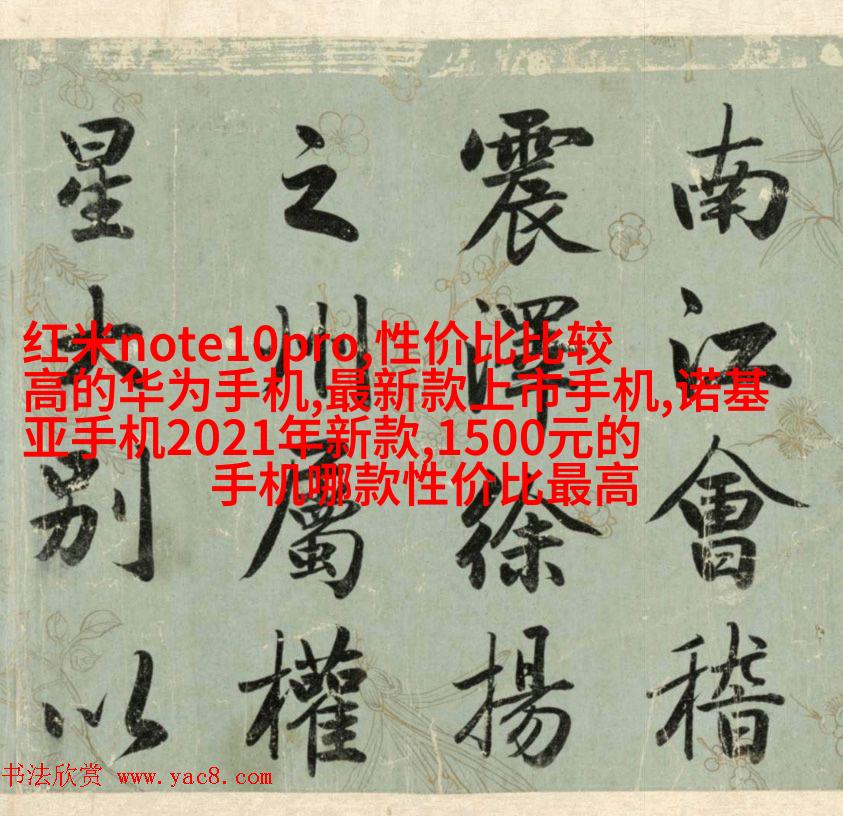 南江會稽
震澤徐揚
之州屬權
星大別以
红米note10pro,性价比比较
高的华为手机,最新款上市手机,诺基
亚手机2021年新款,1500元的
手机哪款性价比最高
书法欣赏 www.yac8.com